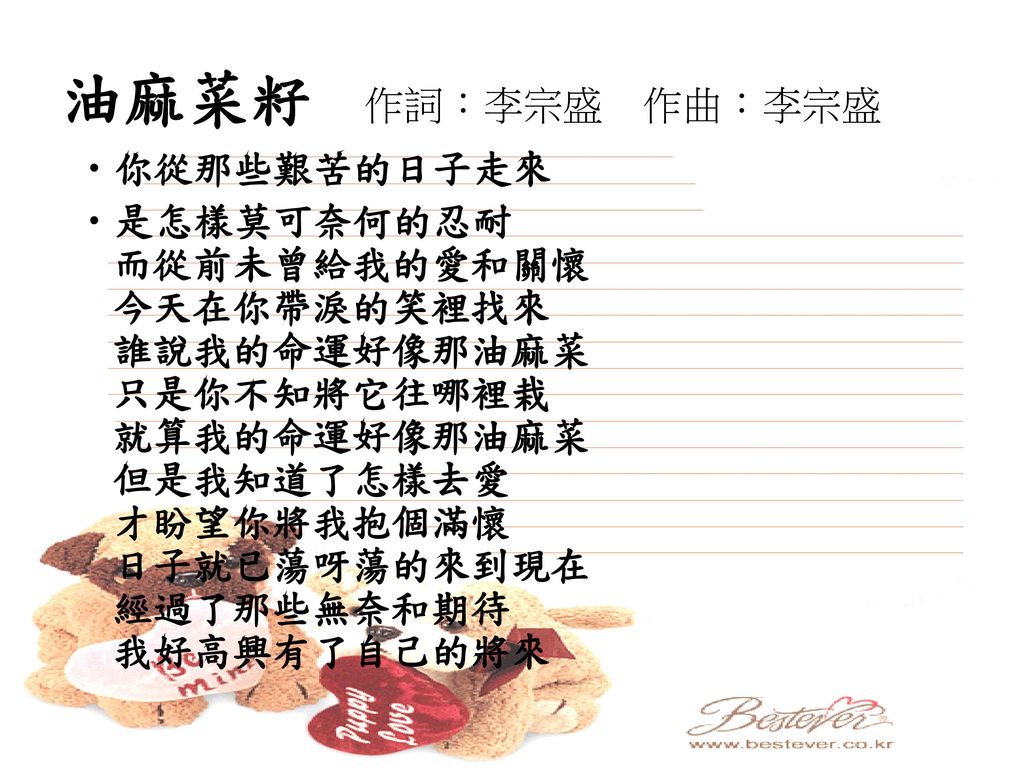 油麻菜籽 作詞：李宗盛 作曲：李宗盛
•你從那些艱苦的日子走來
•是怎樣莫可奈何的忍耐
而從前未曾給我的愛和關懷
今天在你帶淚的笑裡找來
誰說我的命運好像那油麻菜
只是你不知將它往哪裡栽
就算我的命運好像那油麻菜
但是我知道了怎樣去愛
才盼望你將我抱個滿懷
日子就已蕩呀蕩的來到現在
經過了那些無奈和期待
我好高興有了自己的將來
Be
mine
Puppy
Love
Bestever
www.bestever.co.kr